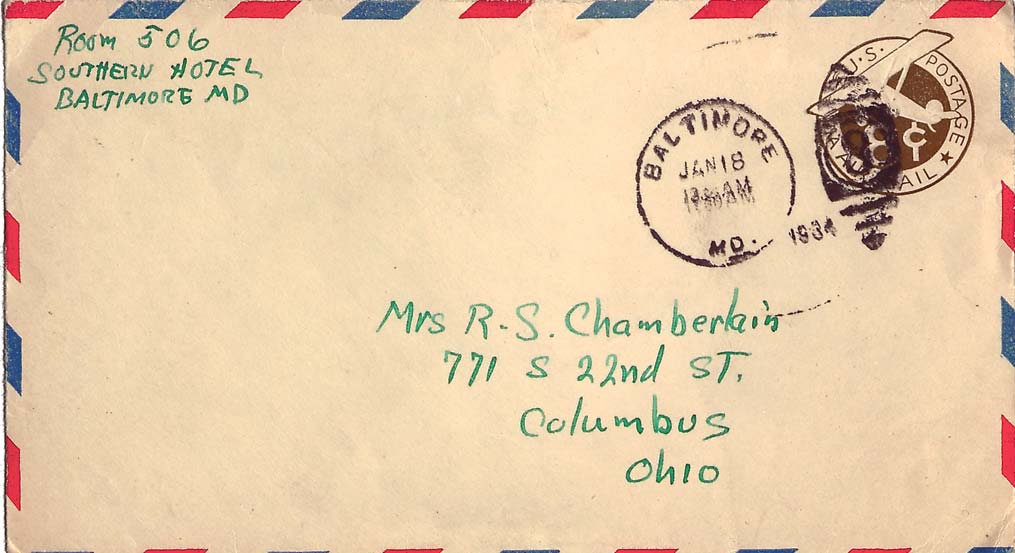 Room 506
SOUTHERN HOTEL
BALTIMORE MD
U.S. POSTAGE
VIA AIR MAIL
8¢
BALTIMORE
JAN 18
AM
MD.
1934
Mrs R.S. Chamberlain
771 S 22nd ST.
Columbus
Ohio